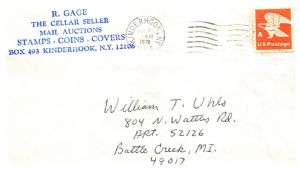 R. GAGE
THE CELLAR SELLER
MAIL AUCTIONS
STAMPS - COINS - COVERS
BOX 493 KINDERHOOK, N.Y. 12106
KINDERHOOK, NY
AM
1978
A
US Postage
William T. Uhls
804 N. Wattles Rd.
APT. 52126
Battle Creek, MI.
49017